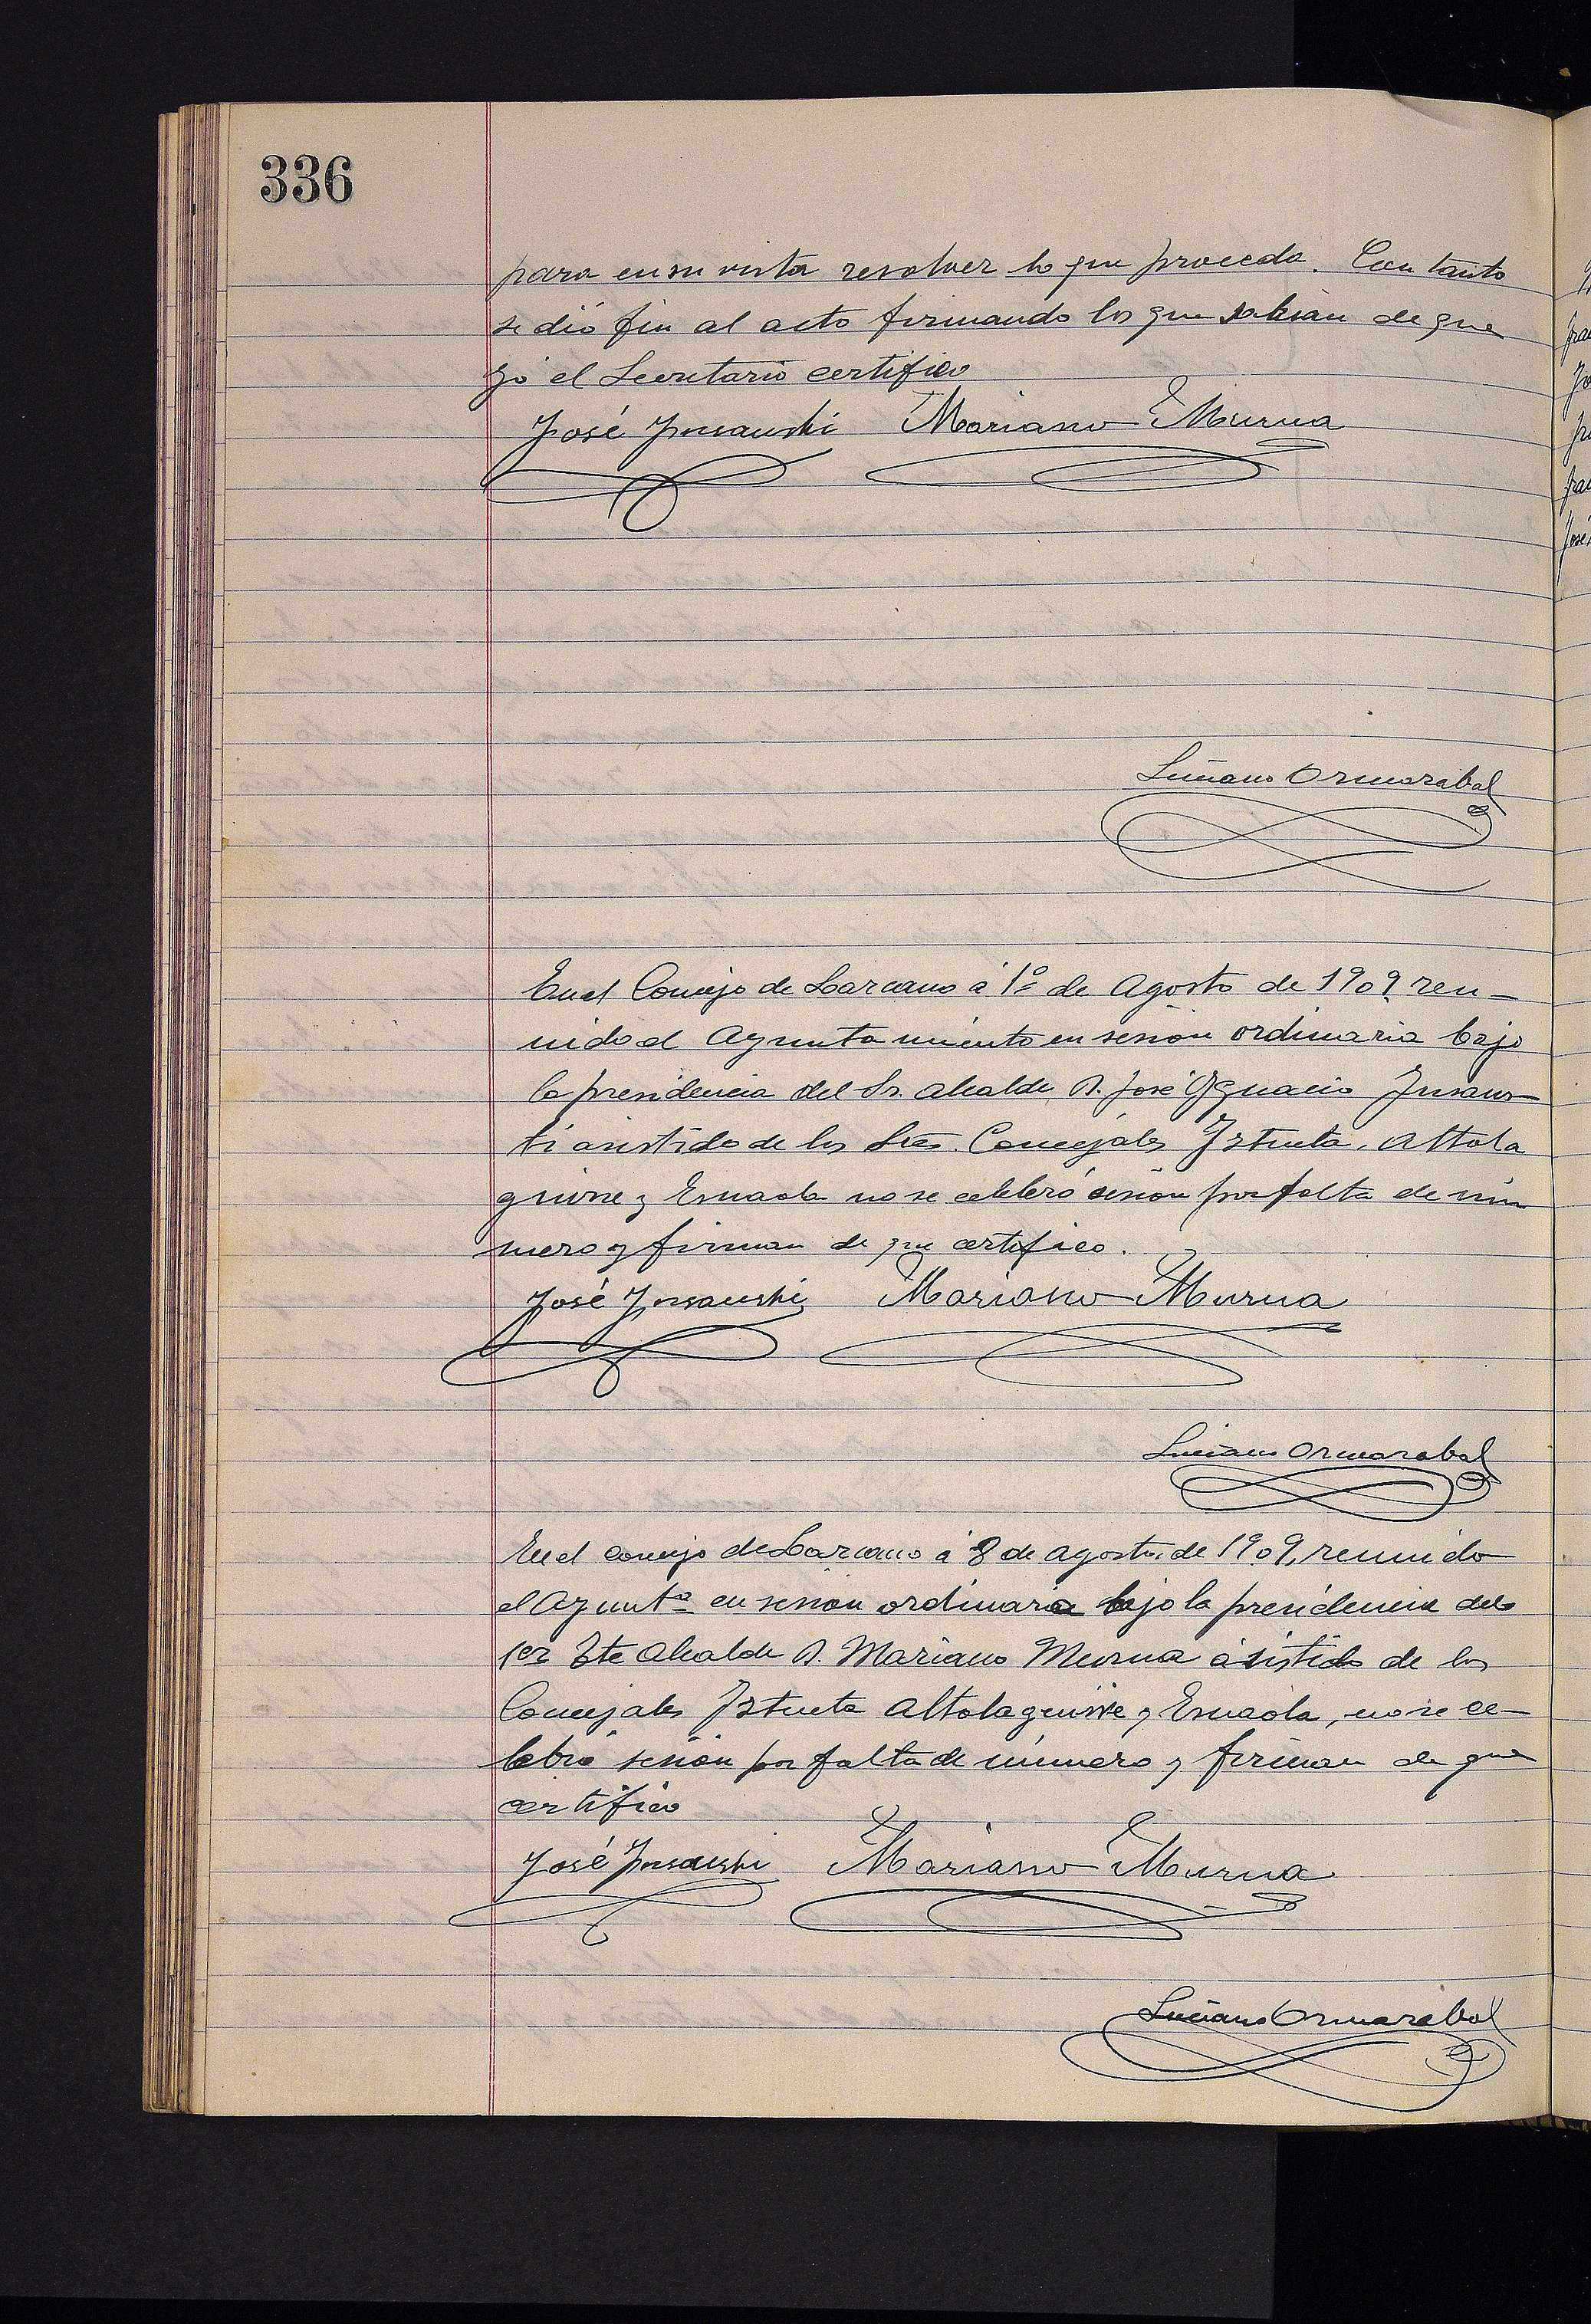 336
para en su vista resolver lo que proceda. Con tanto
se dió fin al acto firmando los que sabian de que
yó el Secretario certifico
José Insausti Mariano Murua
Luciano Ormazabal
En el Concejo de Lazcano á 1º de Agosto de 1909 reu-
nido el Ayuntamiento en sesión ordinaria bajo
la presidencia del Sr. Alcalde D. José Ygnacio Insaus-
ti asistido de los Sres. Concejales Iztueta, Altola
guirre y Esnaola no se celebró sesion por falta de nú
mero y firman de que certifico.
José Insausti Mariano Murua
Luciano Ormazabal
En el concejo de Lazcano á 8 de agosto de 1909, reunido
el Ayuntº en sesion ordinaria bajo la presidencia del
1er Tte Alcalde D. Mariano Murua asistido de los
Concejales Iztueta Altolaguirre y Esnaola, no se ce-
lebró sesión por falta de número y firman de que
certifico
José Insausti Mariano Murua
Luciano Ormazabal